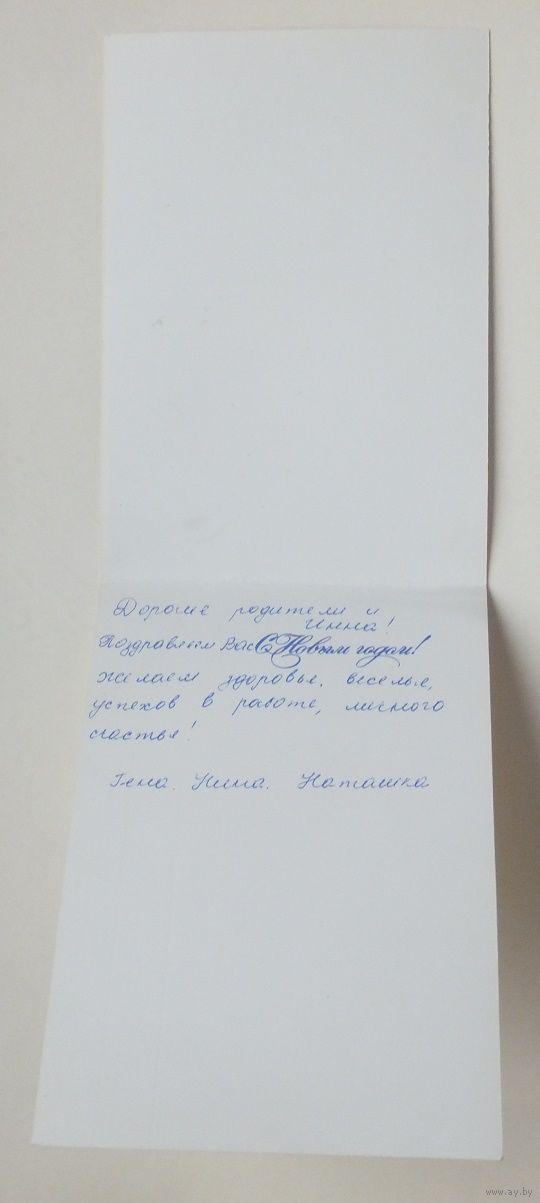 Дорогие родители и
Инна!
Поздравляем Вас С Новым годом!
желаем здоровья, веселья,
успехов в работе, личного
счастья!
Гена. Нина. Наташка
www.ay.by